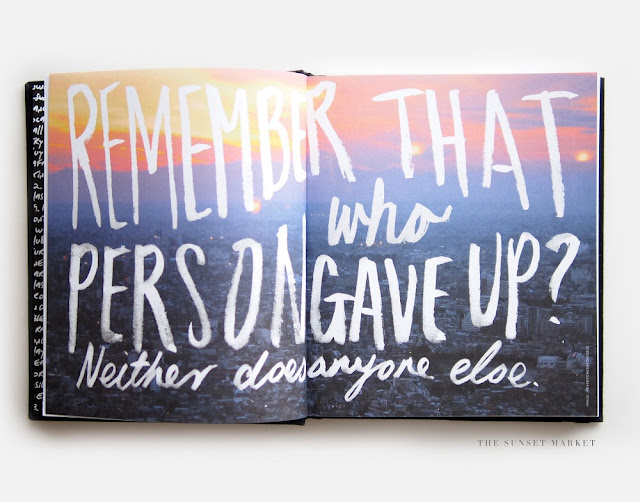 REMEMBER THAT
who
PERSON GAVE UP?
Neither does anyone else.
THE SUNSET MARKET